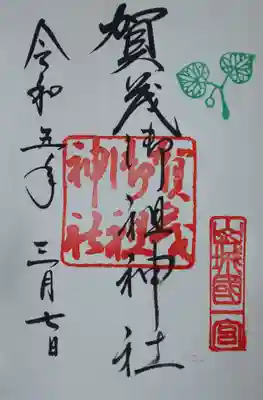 山城國一宮
賀茂御祖神社
賀茂御祖神社
令和五年三月七日